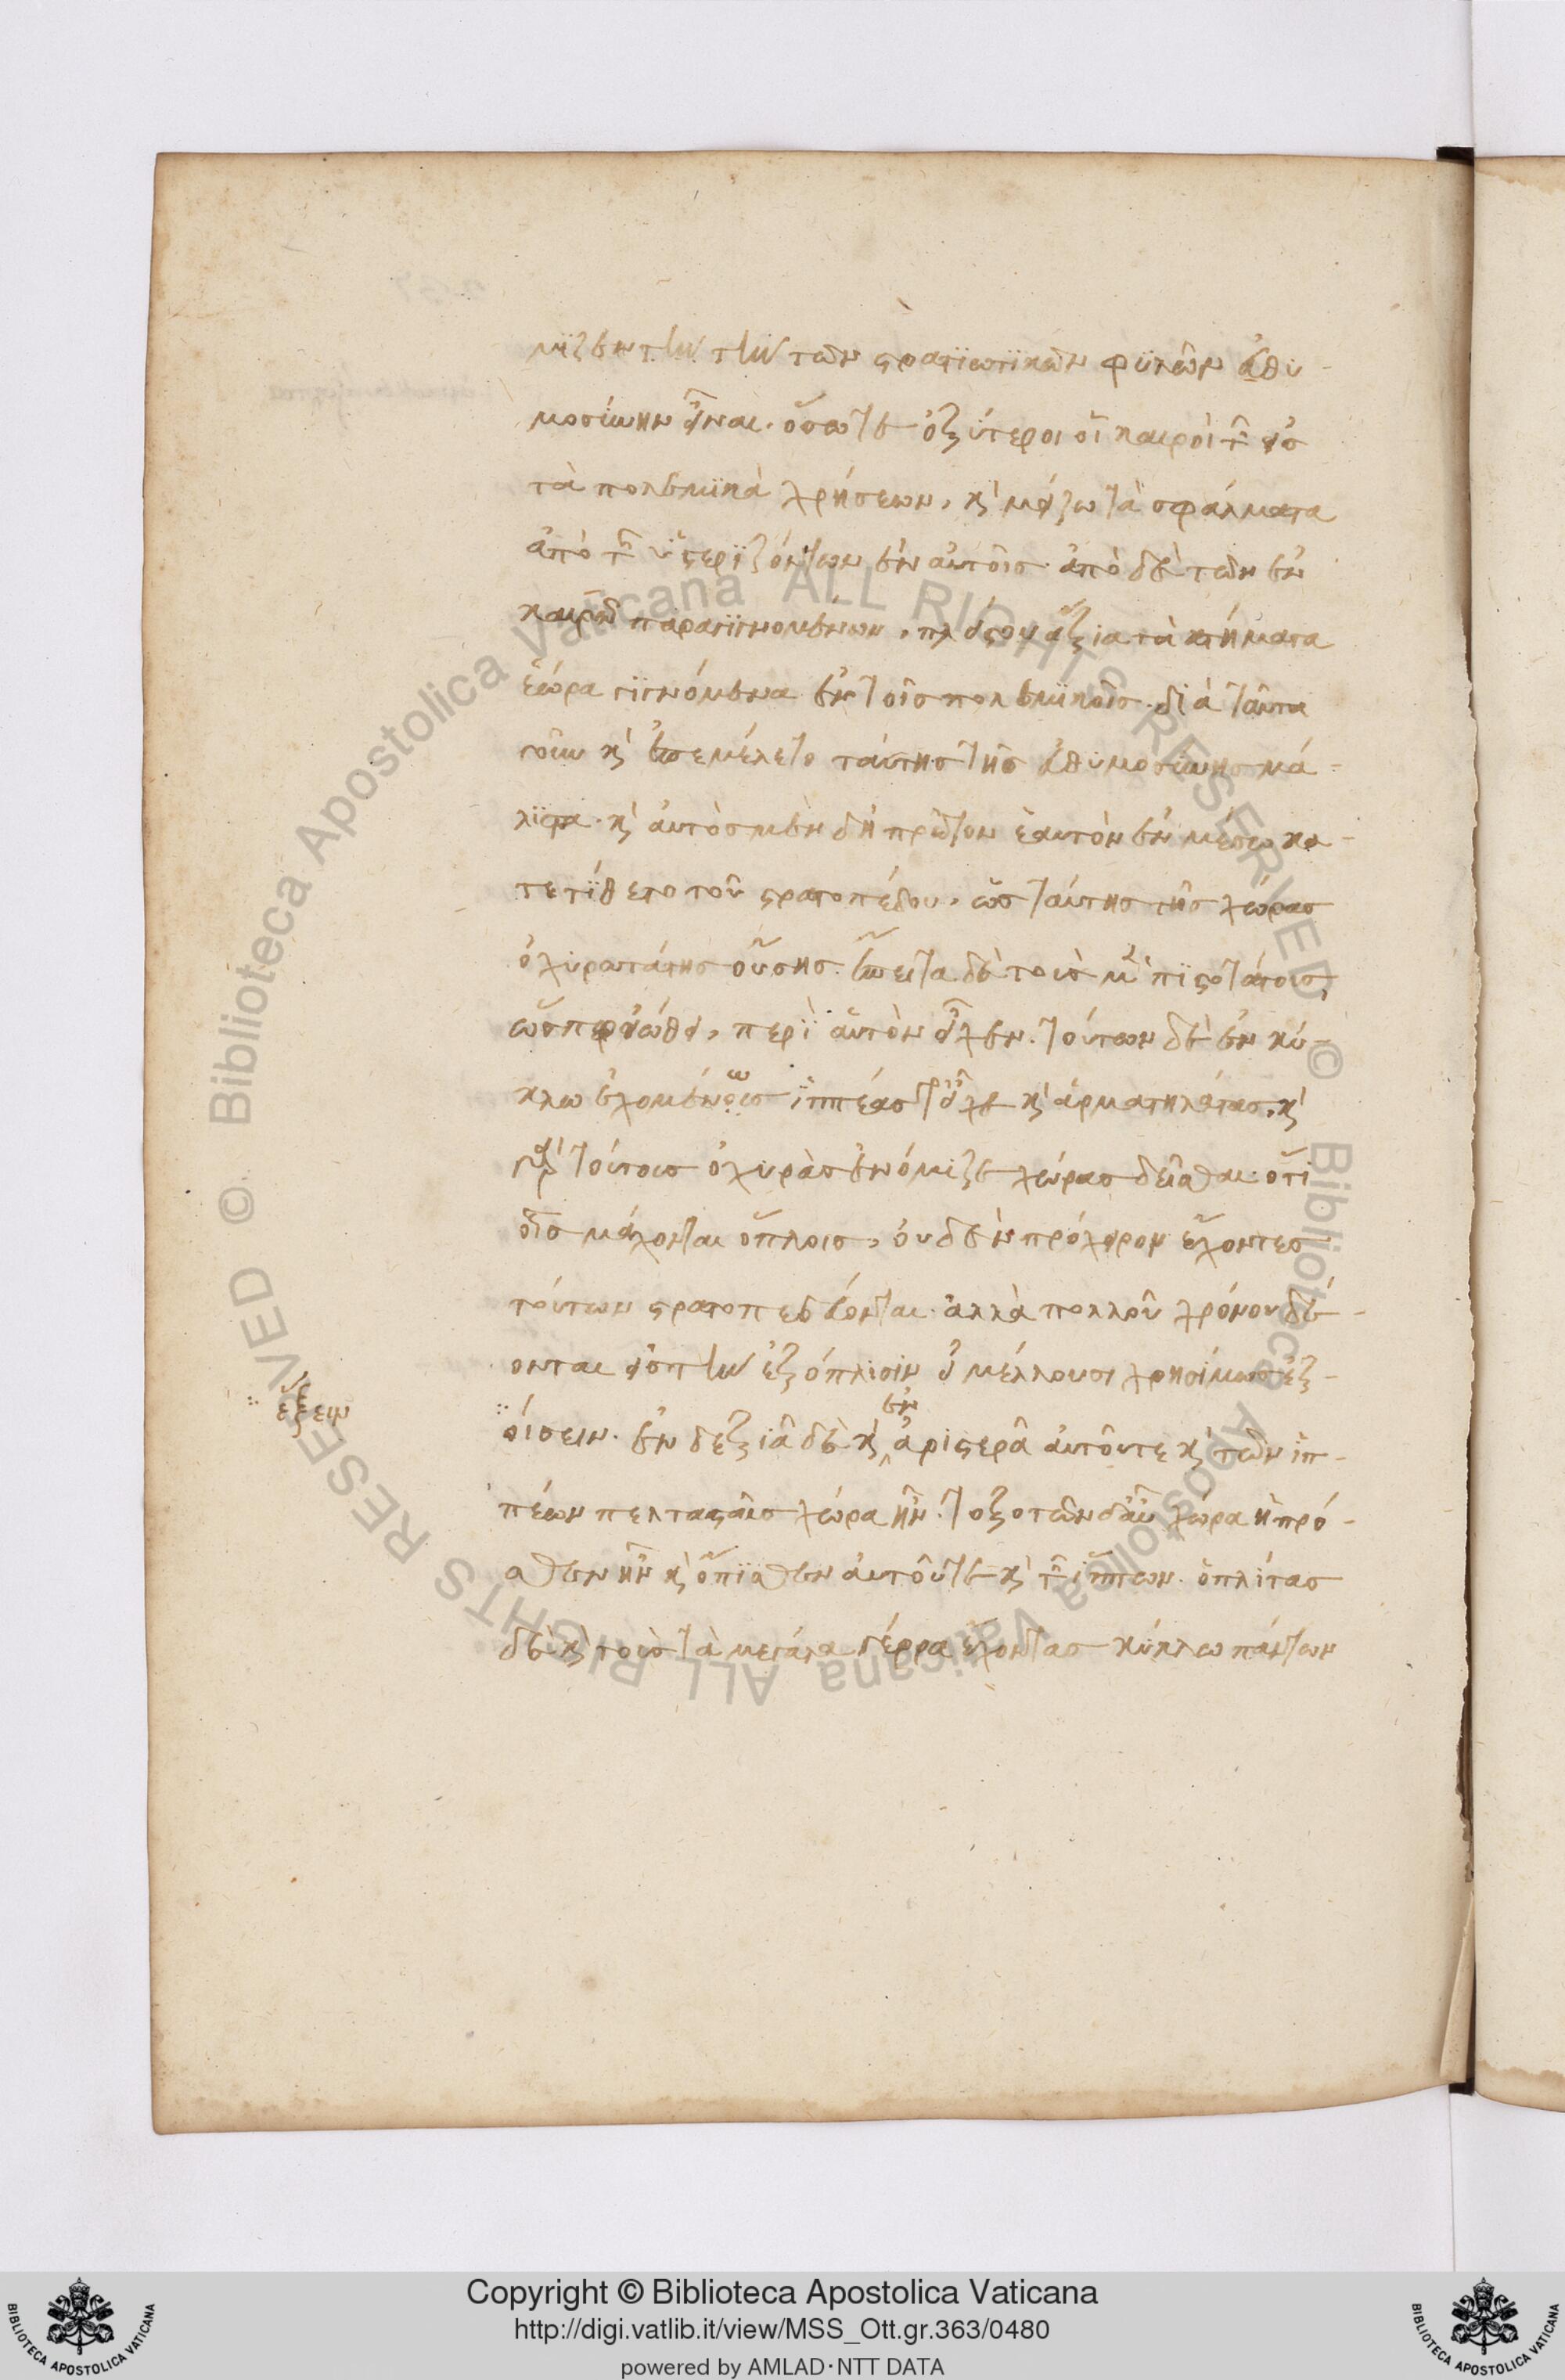 μϊζεν τὴν τὴν τῶν στρατϊωτϊκῶν φϋλῶν εὐθϋ-
μοσύνην εἶναι. ὅσω τε ὀξύτεροι οἱ καιροὶ τῶν εἰς
τὰ πολεμϊκὰ χρήσεων, καὶ μείζω τὰ σφάλματα
ἀπὸ τῶν ὑστερϊζόντων ἐν αὐτοῖς. ἀπὸ δὲ τῶν ἐν
καιρῶ παραγϊγνομένων, πλείστου ἄξια τὰ κτήματα
ἑώρα γϊγνόμενα ἐν τοῖς πολεμϊκοῖς. δϊὰ ταῦτα
οὖν καὶ ἐπεμέλετο ταύτης τῆς εὐθϋμοσύνης μά-
λϊστα. καὶ αὐτὸς μὲν δὴ πρῶτον ἑαυτὸν ἐν μέσω κα-
τετϊθετο τοῦ στρατοπέδου, ὡς ταύτης τῆς χώρας
ὀχϋρωτάτης οὔσης. ἔπειτα δὲ τοὺς μὲν πϊστοτάτους,
ὥσπερ εἰώθει, περὶ αὑτὸν εἶχεν. τούτων δὲ ἐν κύ-
κλω ἐχομένους ἱππέας τ' εἶχε καὶ ἁρματηλάτας. καὶ
γὰρ τούτους ὀχυρὰς ἐνόμϊζε χώρας δεῖσθαι. ὅτι
οἷς μάχονται ὅπλοις, οὐδὲν πρόχειρον ἔχοντες
τούτων στρατοπεδεύονται. ἀλλὰ πολλοῦ χρόνου δέ-
ονται εἰς τὴν ἐξόπλισιν εἰ μέλλουσι χρησίμως ἐξ-
οίσειν. ἐν δεξιᾶ δὲ καὶ ἐν ἀριστερᾶ αὐτοῦ τε καὶ τῶν ἱπ-
ἕξειν
πέων πελτασταῖς χώρα ἦν. τοξοτῶν δ' αὖ χώρα ἡ πρό-
σθεν ἦν καὶ ὄπϊσθεν αὐτοῦ τε καὶ τῶν ἱππέων. ὁπλίτας
δὲ καὶ τοὺς τὰ μεγάλα γέρρα ἔχοντας κύκλω πάντων
Copyright © Biblioteca Apostolica Vaticana
http://digi.vatlib.it/view/MSS_Ott.gr.363/0480
powered by AMLAD·NTT DATA